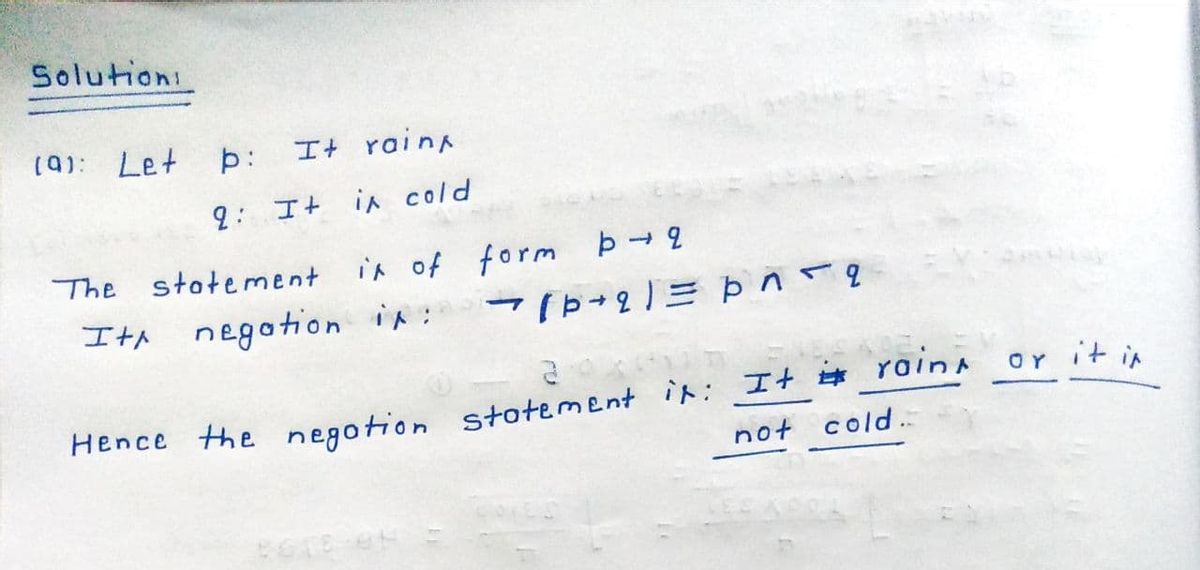 Solution:
(a): Let p: It rains
q: It is cold
The statement is of form p → q
Its negation is: ¬(p→q) ≡ p ∧ ¬q
Hence the negation statement is: It rains or it is
not cold.